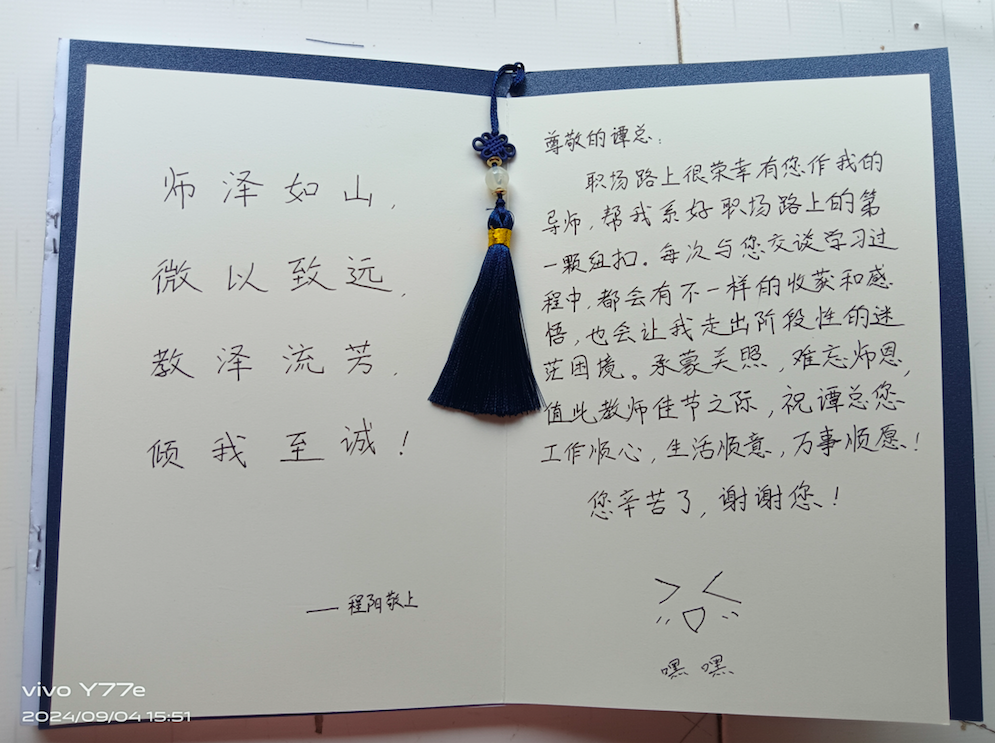 师泽如山，
微以致远，
教泽流芳，
倾我至诚！
——程阳敬上
尊敬的谭总：
职场路上很荣幸有您作我的
导师，帮我系好职场路上的第
一颗纽扣。每次与您交谈学习过
程中，都会有不一样的收获和感
悟，也会让我走出阶段性的迷
茫困境。承蒙关照，难忘师恩，
值此教师佳节之际，祝谭总您
工作顺心，生活顺意，万事顺愿！
您辛苦了，谢谢您！
嘿嘿
vivo Y77e
2024/09/04 15:51